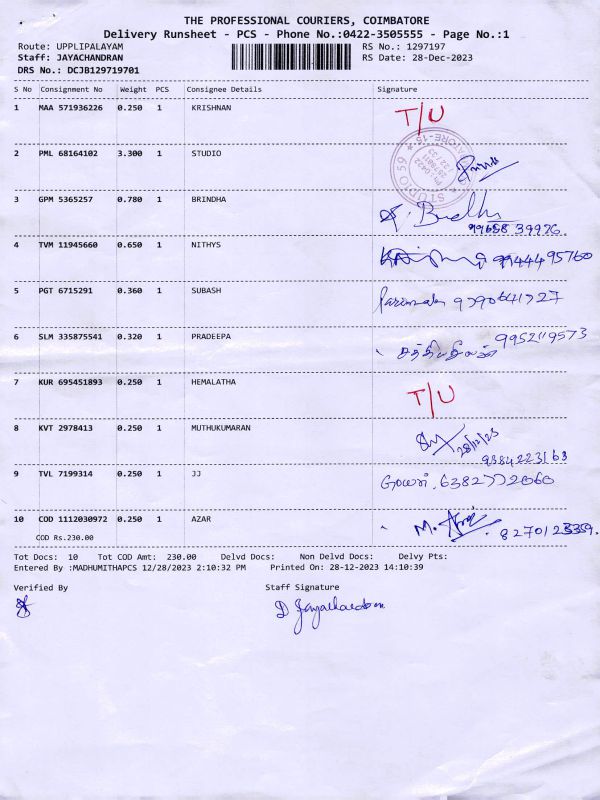 THE PROFESSIONAL COURIERS, COIMBATORE
Delivery Runsheet - PCS - Phone No.:0422-3505555 - Page No.:1
Route: UPPLIPALAYAM RS No.: 1297197
Staff: JAYACHANDRAN RS Date: 28-Dec-2023
DRS No.: DCJB129719701
S No Consignment No Weight PCS Consignee Details Signature
1 MAA 571936226 0.250 1 KRISHNAN T/U
2 PML 68164102 3.300 1 STUDIO
STUDIO 59
3 GPM 5365257 0.780 1 BRINDHA
99658 39976.
4 TVM 11945660 0.650 1 NITHYS 9944495760
5 PGT 6715291 0.360 1 SUBASH 9790641727
6 SLM 335875541 0.320 1 PRADEEPA 9952119573
7 KUR 695451893 0.250 1 HEMALATHA T/U
8 KVT 2978413 0.250 1 MUTHUKUMARAN 28/12/23
9384223163
9 TVL 7199314 0.250 1 JJ 6382772060
10 COD 1112030972 0.250 1 AZAR 8270123359.
COD Rs.230.00
Tot Docs: 10 Tot COD Amt: 230.00 Delvd Docs: Non Delvd Docs: Delvy Pts:
Entered By :MADHUMITHAPCS 12/28/2023 2:10:32 PM Printed On: 28-12-2023 14:10:39
Verified By Staff Signature
D Jayachandran